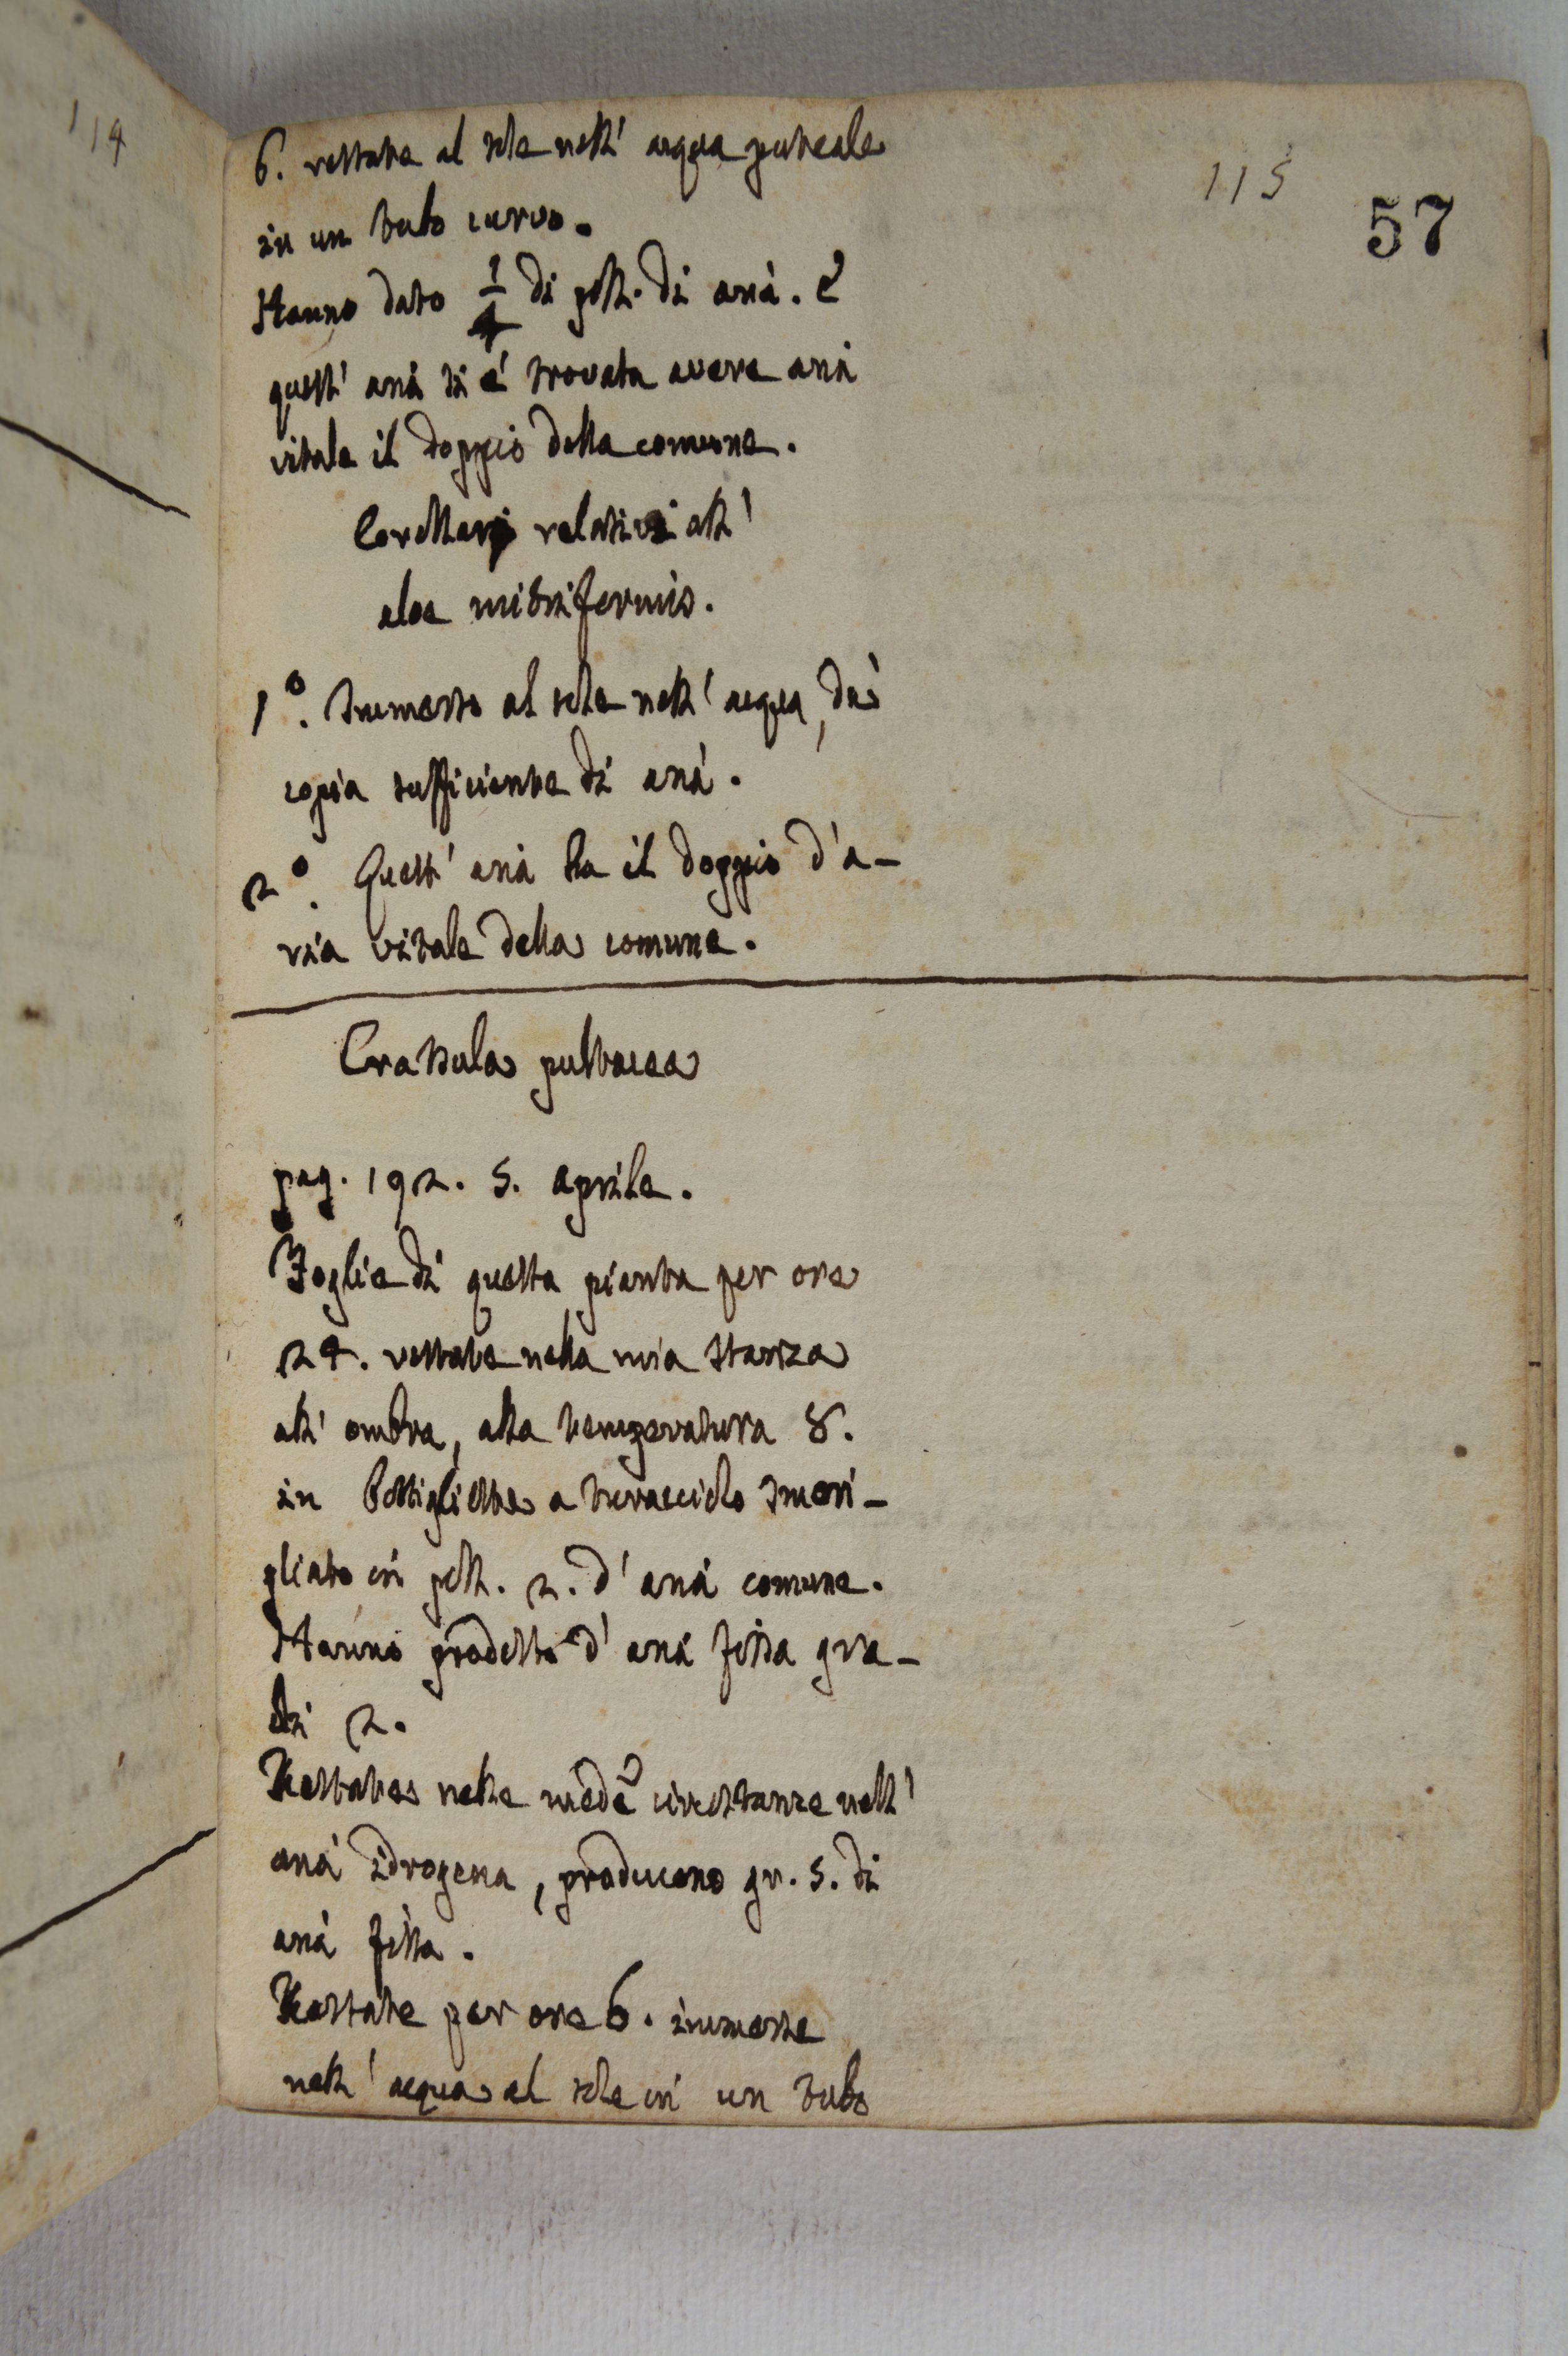 114
115
57
6. restate al sole nell' acqua puteale
in un tubo curvo.
Hanno dato 1/4 di poll. di aria. E
quest' aria si é trovata avere aria
vitale il doppio della comune.
Corollarj relativi all'
aloe mitriformis.
1°. Immerso al sole nell' acqua, dà
copia sufficiente di aria.
2°. Quest' aria ha il doppio d'a-
ria vitale della comune.
Crassula
pag. 192. 5. aprile.
Foglie di questa pianta per ore
24. restate nella mia stanza
all' ombra, alla temperatura 8.
in bottigliette a turacciolo smeri-
gliato in poll. 2. d' aria comune.
Hanno prodotto d' aria fissa gra-
di 2.
Restates nelle mede circostanze nell'
aria idrogena, producono gr. 5. di
aria fissa.
Restate per ore 6. immerse
nell' acqua al sole in un tubo